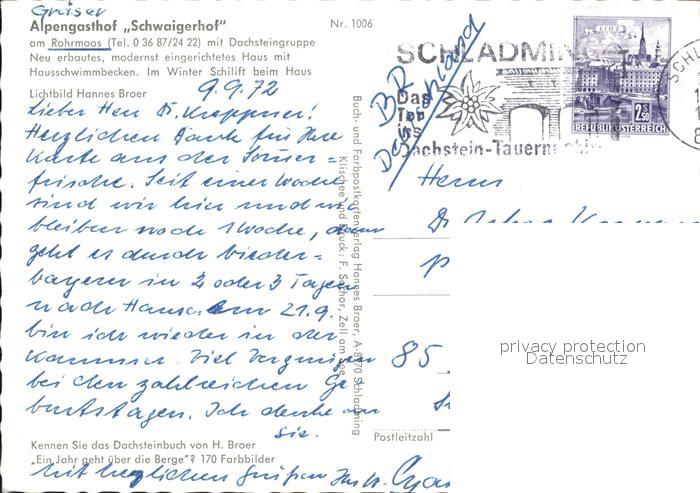 Grüser
Alpengasthof „Schwaigerhof"
Nr. 1006
am Rohrmoos (Tel. 0 36 87/24 22) mit Dachsteingruppe
Neu erbautes, modernst eingerichtetes Haus mit
Hausschwimmbecken. Im Winter Schilift beim Haus
Lichtbild Hannes Broer
9.9.72
Lieber Herr Dr. Kreppner!
Herzlichen Dank für Ihre
Karte aus der Sommer=
frische. Seit einer Woche
sind wir hier und wir
bleiben noch 1 Woche, dann
geht es durch Nieder=
bayern in 2 oder 3 Tagen
nach Hause. Am 21.9.
bin ich wieder in der
Kammer. Viel Vergnügen
bei den zahlreichen Ge
burtstagen. Ich denke an
sie.
Mit herzlichen Grüßen Ihr
Kennen Sie das Dachsteinbuch von H. Broer
„Ein Jahr geht über die Berge"? 170 Farbbilder
Buch- und Farbpostkartenverlag Hannes Broer, A-8970 Schladming
Klischee und Druck: F. Sochor, Zell am See
SCHLADMING
Das
Tor
ins
Dachstein-Tauern
BR
Deutschland
LINZ
2.50
REPUBLIK ÖSTERREICH
SCHL
Herrn
Dr.
85
Postleitzahl
privacy protection
Datenschutz